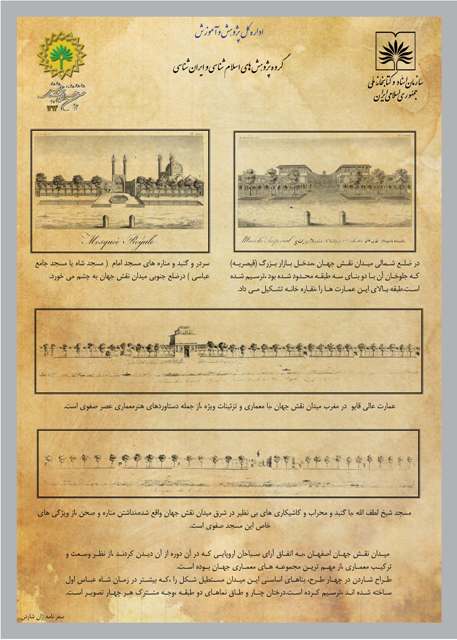 اداره کل پژوهش و آموزش
گروه پژوهش های اسلام شناسی و ایران شناسی
سازمان اسناد و کتابخانه ملی
جمهوری اسلامی ایران
Mosquée Royale
سردر و گنبد و مناره های مسجد امام ( مسجد شاه یا مسجد جامع
عباسی ) درضلع جنوبی میدان نقش جهان به چشم می خورد.
در ضلع شمالی میدان نقش جهان ،مدخل بازار بزرگ (قیصریه)
که جلوخان آن با دو بنای سه طبقه محدود شده بود ،ترسیم شده
است.طبقه بالای این عمارت ها را ،نقاره خانه تشکیل می داد.
عمارت عالی قاپو در مغرب میدان نقش جهان ،با معماری و تزئینات ویژه ،از جمله دستاوردهای هنرمعماری عصر صفوی است.
مسجد شیخ لطف الله ،با گنبد و محراب و کاشیکاری های بی نظیر در شرق میدان نقش جهان واقع شده،نداشتن مناره و صحن ،از ویژگی های
خاص این مسجد صفوی است.
میدان نقش جهان اصفهان ،به اتفاق آرای سیاحان اروپایی که در آن دوره از آن دیدن کردند ،از نظر وسعت و
ترکیب معماری ،از مهم ترین مجموعه های معماری جهان بوده است.
طراح شاردن در چهار طرح، بناهای اساسی این میدان مستطیل شکل را ،که بیشتر در زمان شاه عباس اول
ساخته شده اند ،ترسیم کرده است.درختان چنار و طاق نماهای دو طبقه ،وجه مشترک هر چهار تصویر است.
سفرنامه ژان شاردن